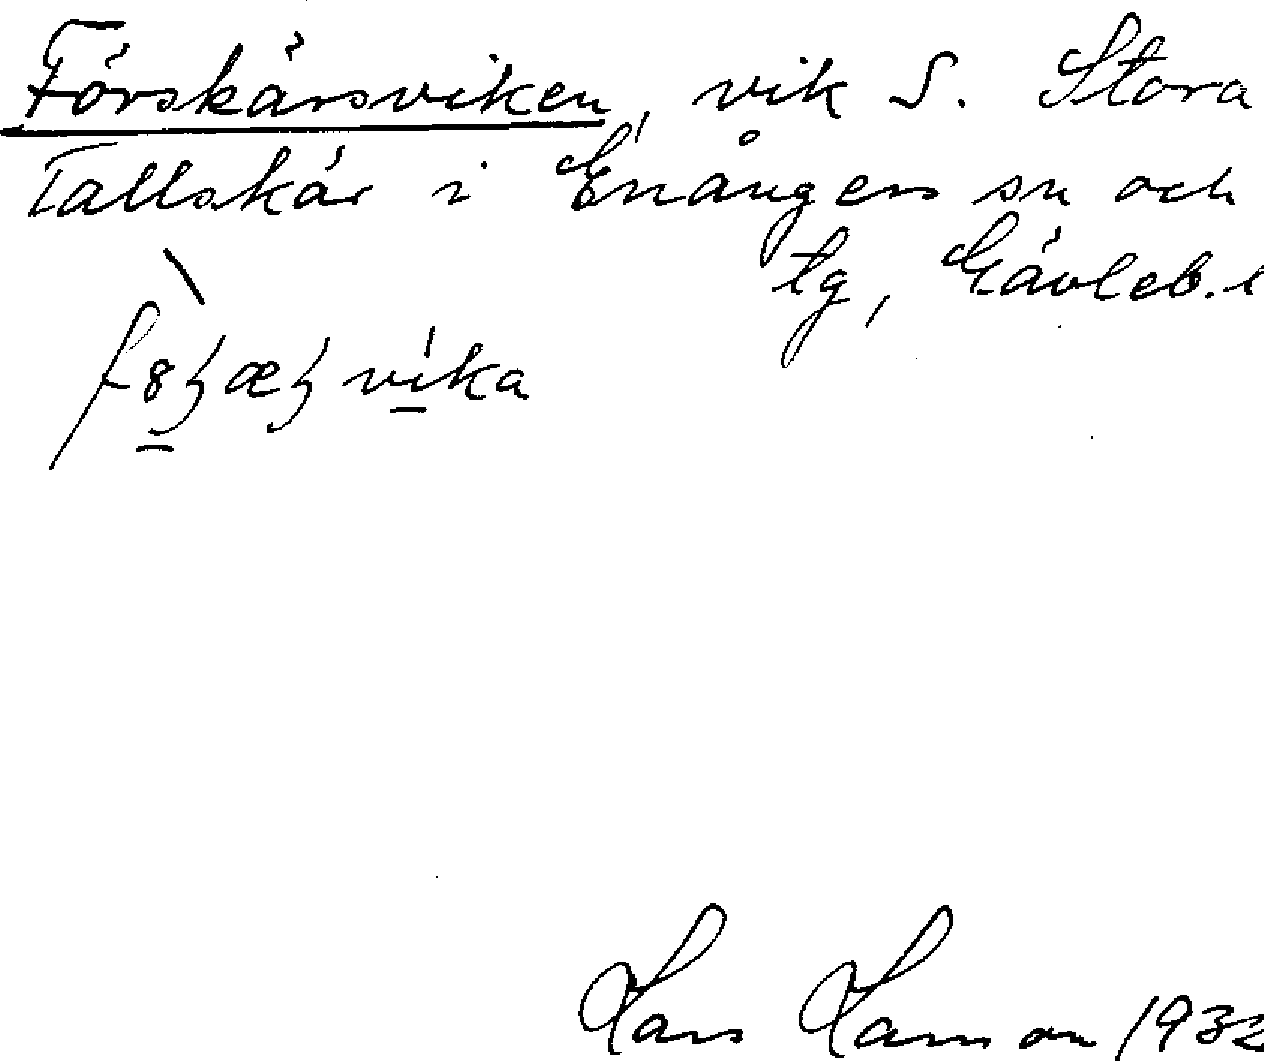 Förskärsviken, vik S. Stora
Tallskär i Enångers sn och
tg, Gävleb. l
vika
Lars Larsson 1932